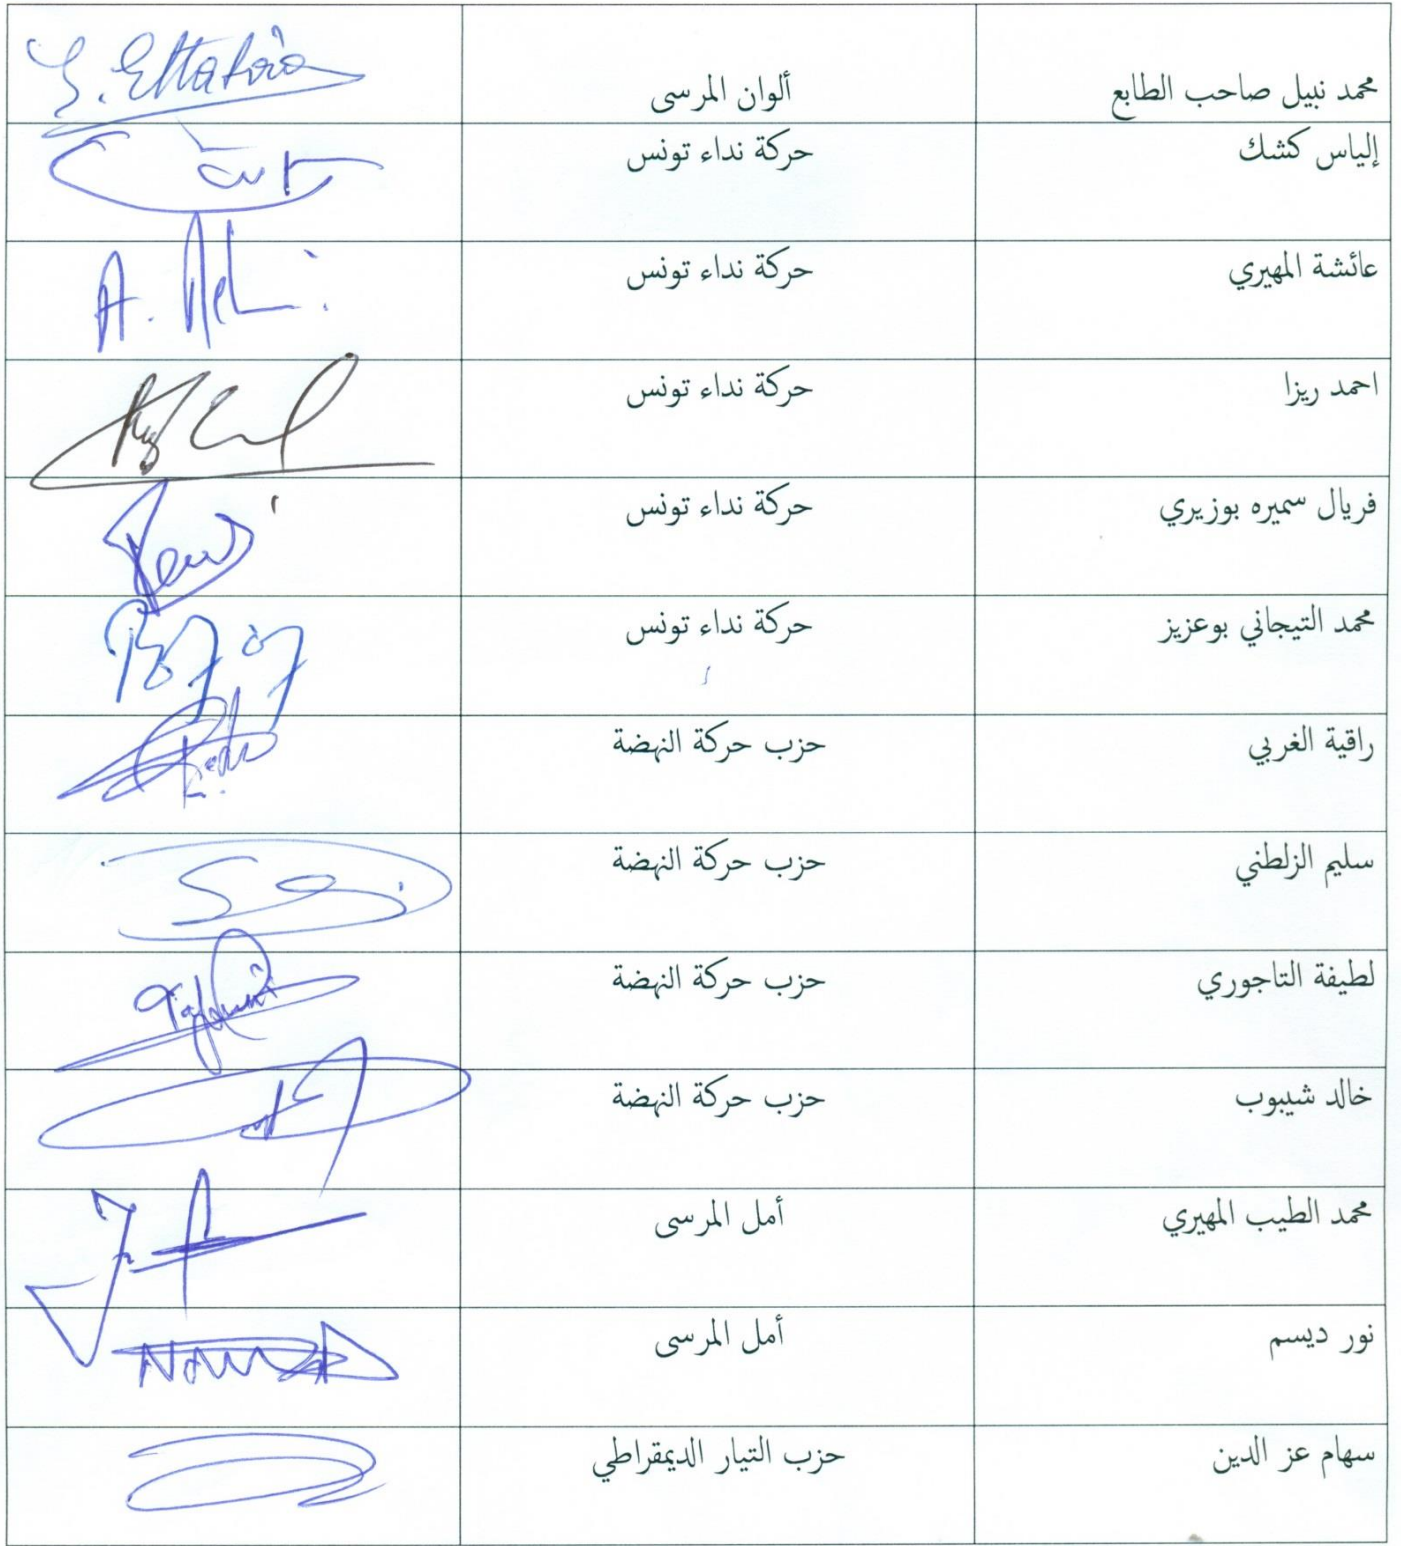 محمد نبيل صاحب الطابع ألوان المرسى S. Ettabaa
إلياس كشك حركة نداء تونس
عائشة المهيري حركة نداء تونس
احمد ريزا حركة نداء تونس
فريال سميره بوزيري حركة نداء تونس
محمد التيجاني بوعزيز حركة نداء تونس
راقية الغربي حزب حركة النهضة
سليم الزلطني حزب حركة النهضة
لطيفة التاجوري حزب حركة النهضة
خالد شيبوب حزب حركة النهضة
محمد الطيب المهيري أمل المرسى
نور ديسم أمل المرسى
سهام عز الدين حزب التيار الديمقراطي